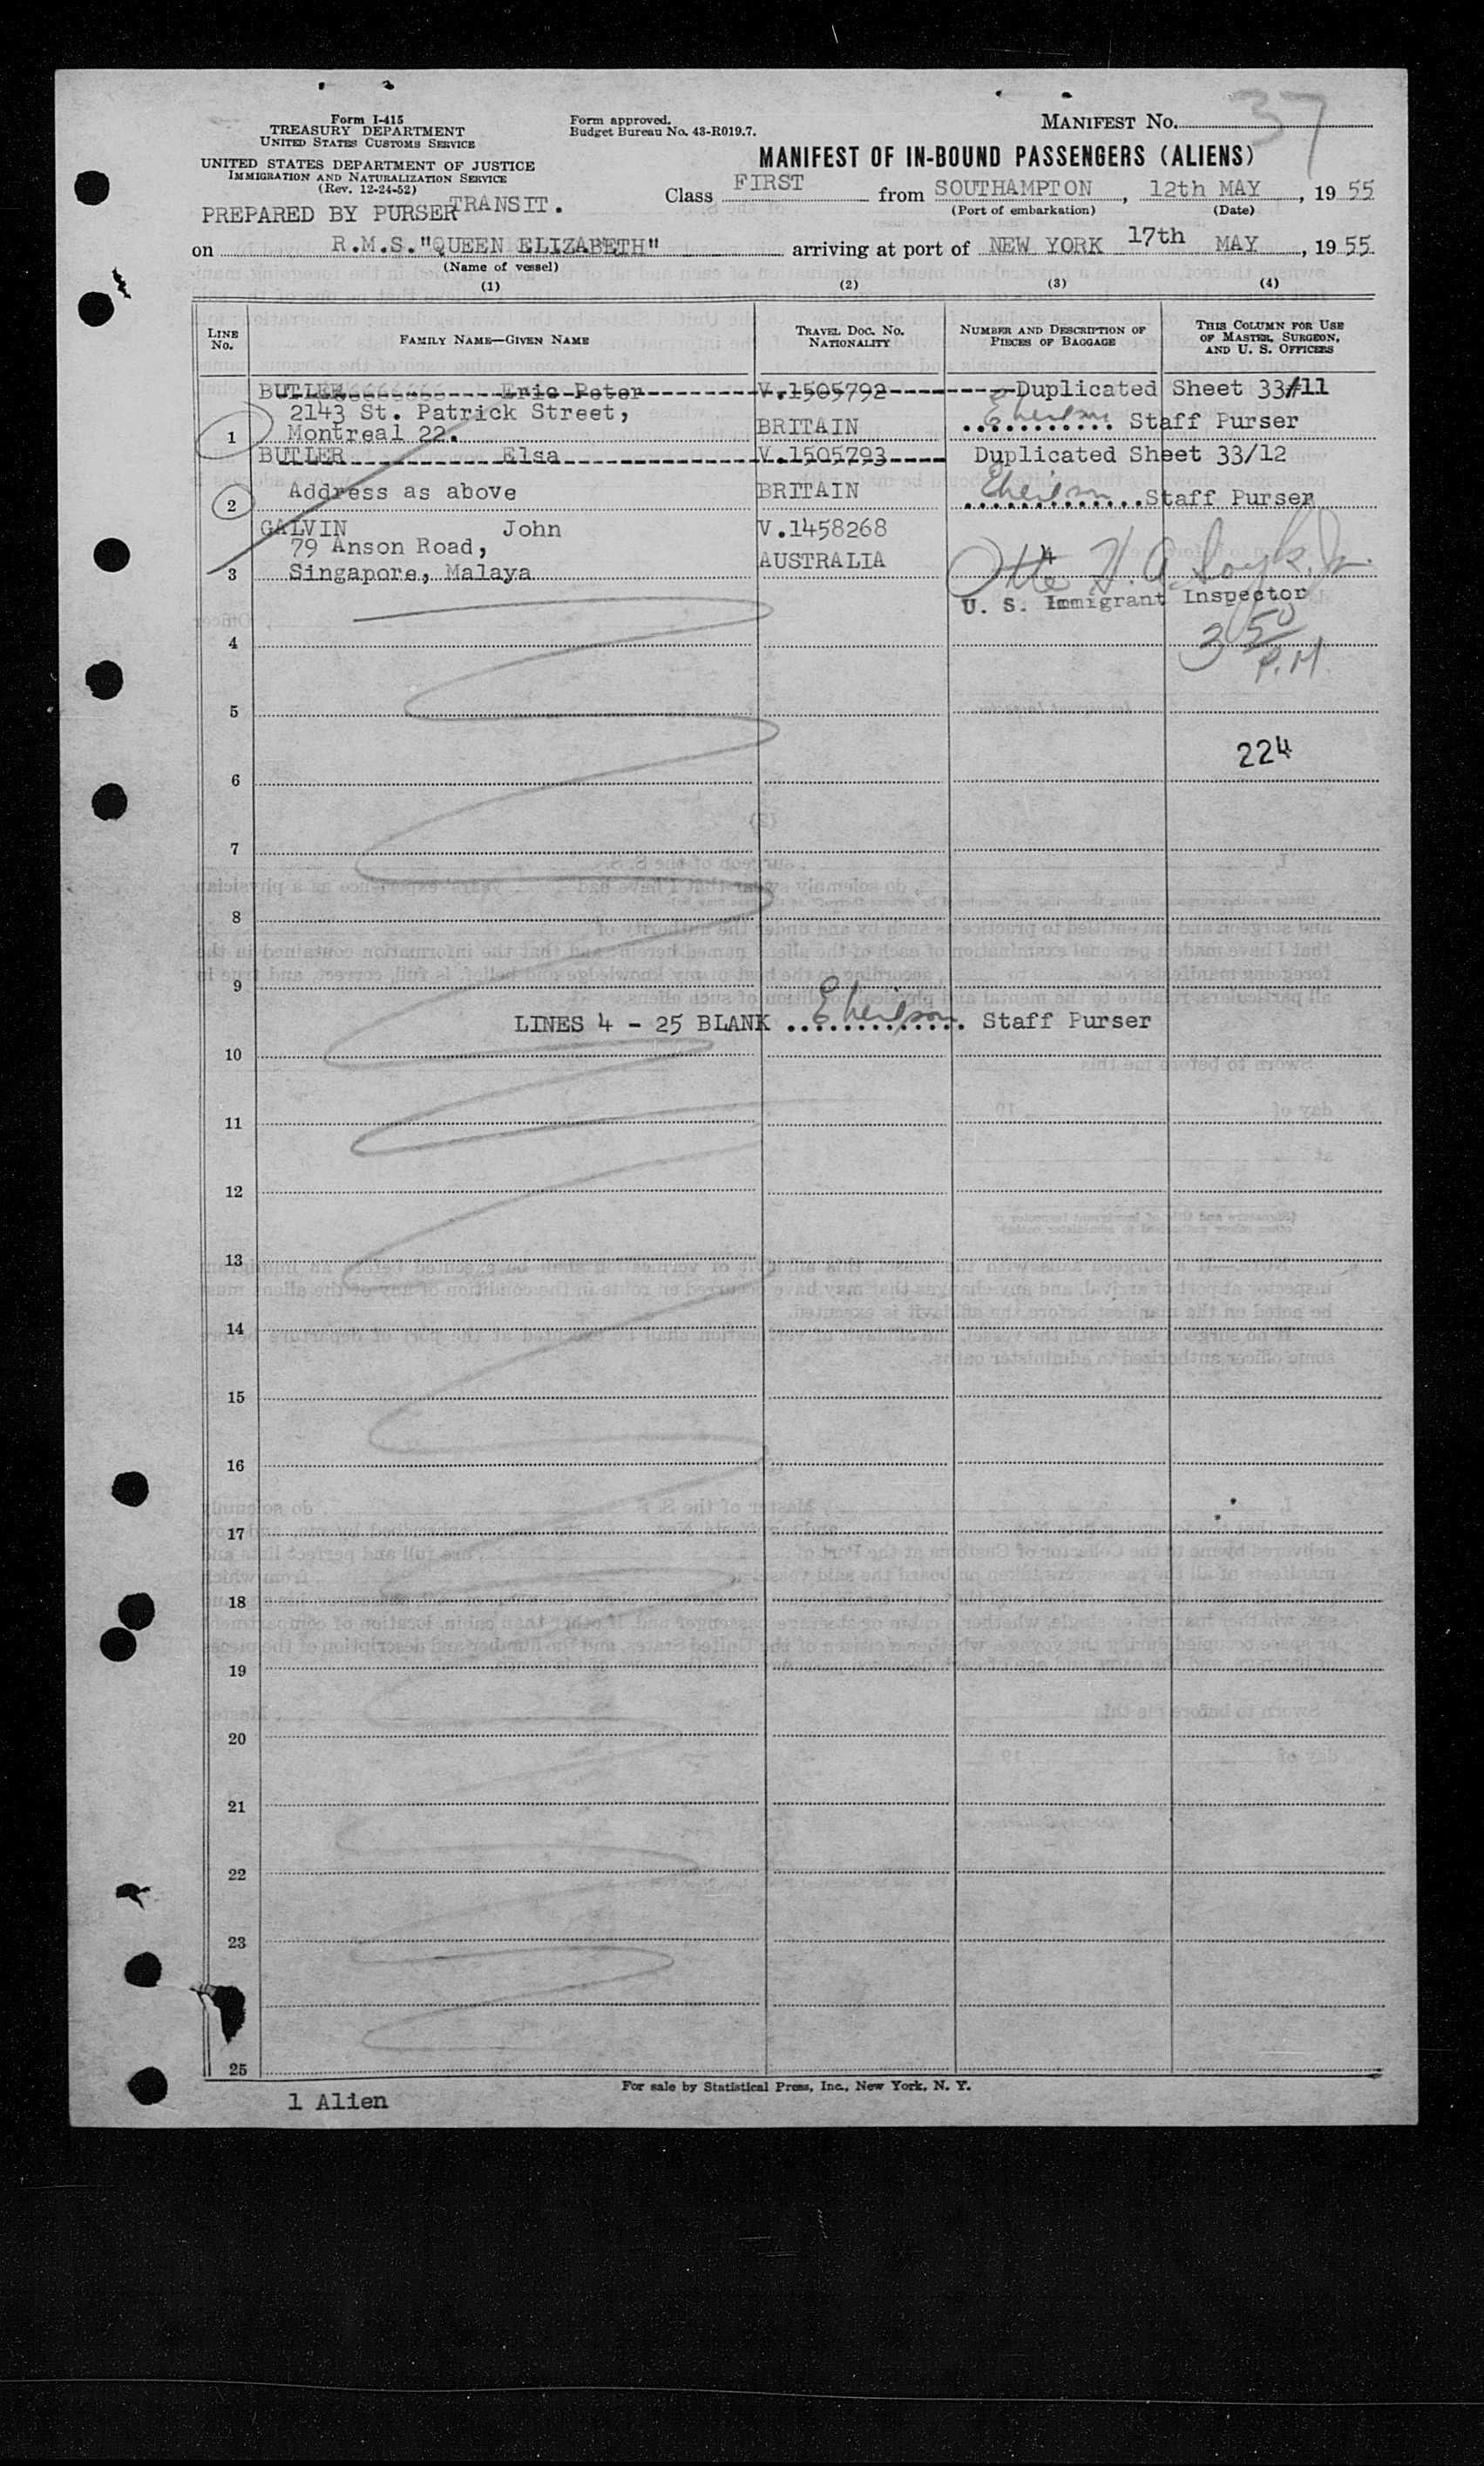 Form I-415
TREASURY DEPARTMENT
UNITED STATES CUSTOMS SERVICE
UNITED STATES DEPARTMENT OF JUSTICE
IMMIGRATION AND NATURALIZATION SERVICE
(Rev. 12-24-52)
PREPARED BY PURSER TRANSIT.
Form approved.
Budget Bureau No. 43-R019.7.
MANIFEST NO. 37
MANIFEST OF IN-BOUND PASSENGERS (ALIENS)
Class FIRST from SOUTHAMPTON, 12th MAY, 19 55
(Port of embarkation) (Date)
on R.M.S."QUEEN ELIZABETH" arriving at port of NEW YORK 17th MAY, 19 55
(Name of vessel)
(1) (2) (3) (4)
LINE NO.
FAMILY NAME—GIVEN NAME
TRAVEL DOC. NO. NATIONALITY
NUMBER AND DESCRIPTION OF PIECES OF BAGGAGE
THIS COLUMN FOR USE OF MASTER, SURGEON, AND U. S. OFFICERS
BUTLER Eric Peter V.1505792 Duplicated Sheet 33/11
2143 St. Patrick Street,
1 Montreal 22. BRITAIN Staff Purser
BUTLER Elsa V.1505793 Duplicated Sheet 33/12
2 Address as above BRITAIN Staff Purser
GALVIN John V.1458268
79 Anson Road,
3 Singapore, Malaya AUSTRALIA
U. S. Immigrant Inspector
3 50 P.M.
4
5
224
6
7
8
9
LINES 4 - 25 BLANK Staff Purser
10
11
12
13
14
15
16
17
18
19
20
21
22
23
25
For sale by Statistical Press, Inc., New York, N. Y.
1 Alien